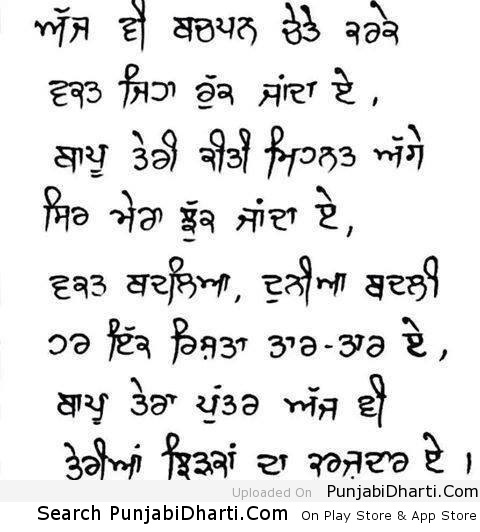 ਅੱਜ ਵੀ ਬਚਪਨ ਚੇਤੇ ਕਰਕੇ
ਵਕਤ ਜਿਹਾ ਰੁੱਕ ਜਾਂਦਾ ਏ,
ਬਾਪੂ ਤੇਰੀ ਕੀਤੀ ਮਿਹਨਤ ਅੱਗੇ
ਸਿਰ ਮੇਰਾ ਝੁੱਕ ਜਾਂਦਾ ਏ,
ਵਕਤ ਬਦਲਿਆ, ਦੁਨੀਆ ਬਦਲੀ
ਹਰ ਇੱਕ ਰਿਸ਼ਤਾ ਤਾਰ-ਤਾਰ ਏ,
ਬਾਪੂ ਤੇਰਾ ਪੁੱਤਰ ਅੱਜ ਵੀ
ਤੇਰੀਆਂ ਝਿੜਕਾਂ ਦਾ ਕਰਜ਼ਦਾਰ ਏ।
Uploaded On PunjabiDharti.Com
Search PunjabiDharti.Com On Play Store & App Store